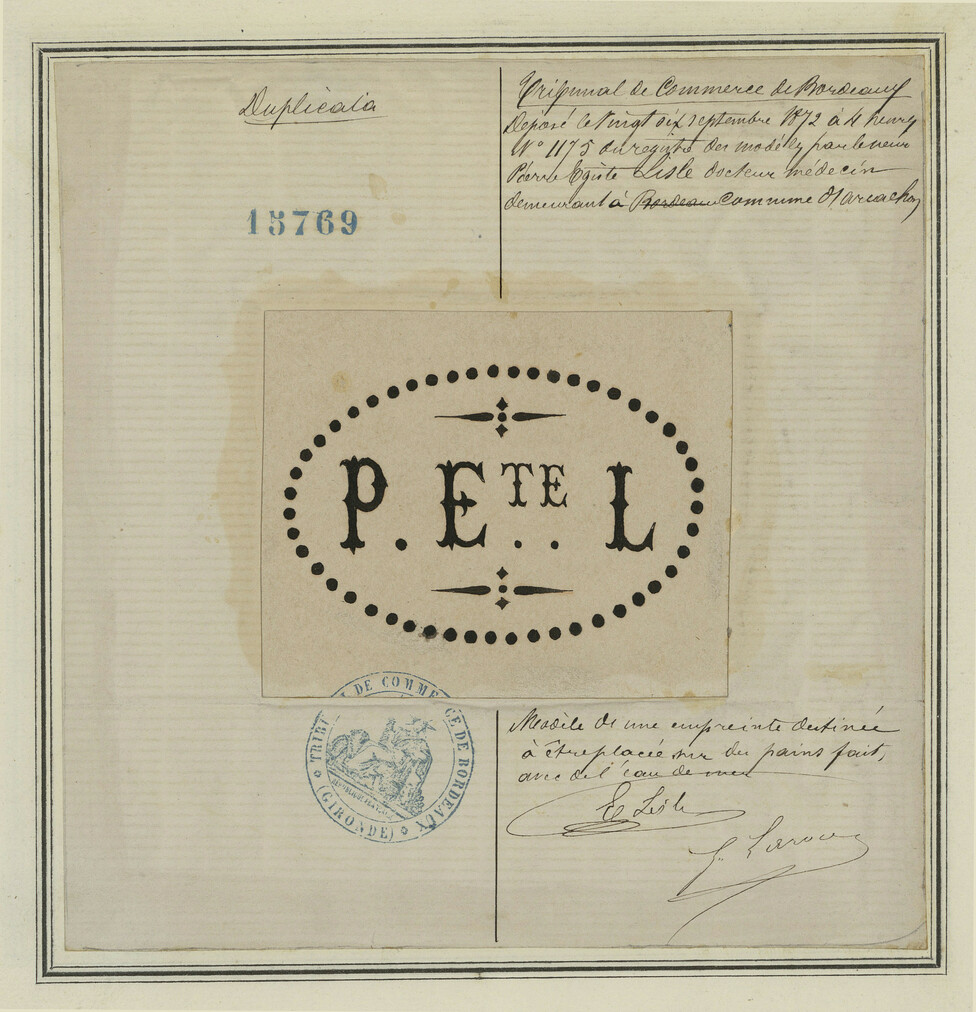 Duplicata
15769
Tribunal de Commerce de Bordeaux
Déposé le Vingt six septembre 1872 à 4 heures
N° 1175 du registre des modèles par le sieur
Pierre Egiste Lisle docteur médecin
demeurant à Bordeaux commune d'Arcachon
P. ETE.. L
TRIBUNAL DE COMMERCE DE BORDEAUX
(GIRONDE)
Modèle d'une empreinte destinée
à être placée sur des pains fait,
avec de l'eau de mer
E Lisle